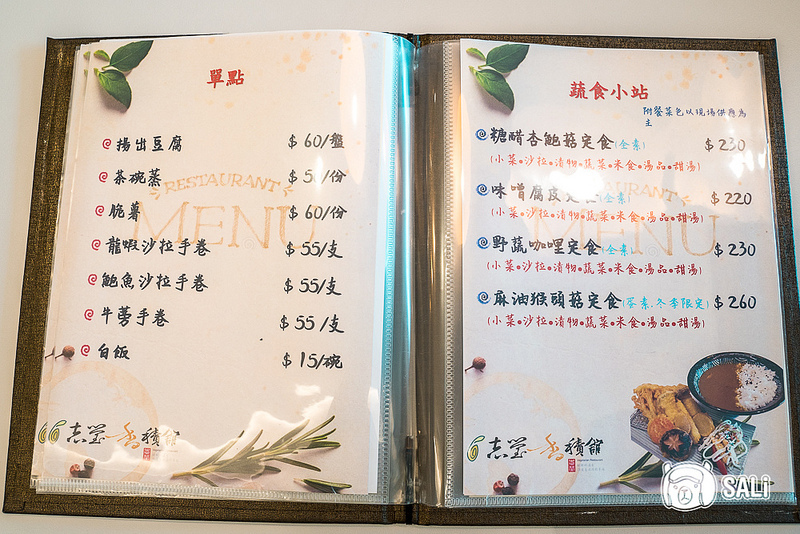 單點
揚出豆腐 $60/盤
茶碗蒸 $5 /份
脆薯 $60/份
龍蝦沙拉手卷 $55/支
鮑魚沙拉手卷 $55/支
牛蒡手卷 $55/支
白飯 $15/碗
RESTAURANT
MENU
香積館
蔬食小站
附餐菜色以現場供應為
主
糖醋杏鮑菇定食(全素) $230
(小菜•沙拉•漬物•蔬菜•米食•湯品•甜湯)
味噌腐皮定食(全素) $220
(小菜•沙拉•漬物•蔬菜•米食•湯品•甜湯)
野蔬咖哩定食(全素) $230
(小菜•沙拉•漬物•蔬菜•米食•湯品•甜湯)
麻油猴頭菇定食(全素.冬季限定) $260
(小菜•沙拉•漬物•蔬菜•米食•湯品•甜湯)
MENU
香積館
SALi